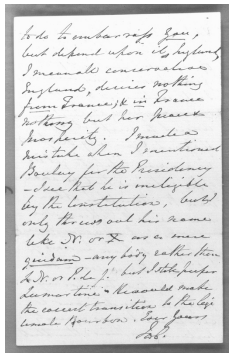 to do to embarrass you,
but depend upon it, England,
I mean all conservative
England, desires nothing
from France, & in France
nothing but her peace &
prosperity. I made a
mistake when I mentioned
for the Presidency
I see that he is ineligible
by the Constitution, but I
only threw out his name
like N. or X as a mere
quidam - anybody rather than
L. N. or P. de J. but I still prefer
Lamartine - he would make
the easiest transition to the
Bourbon. Ever yours